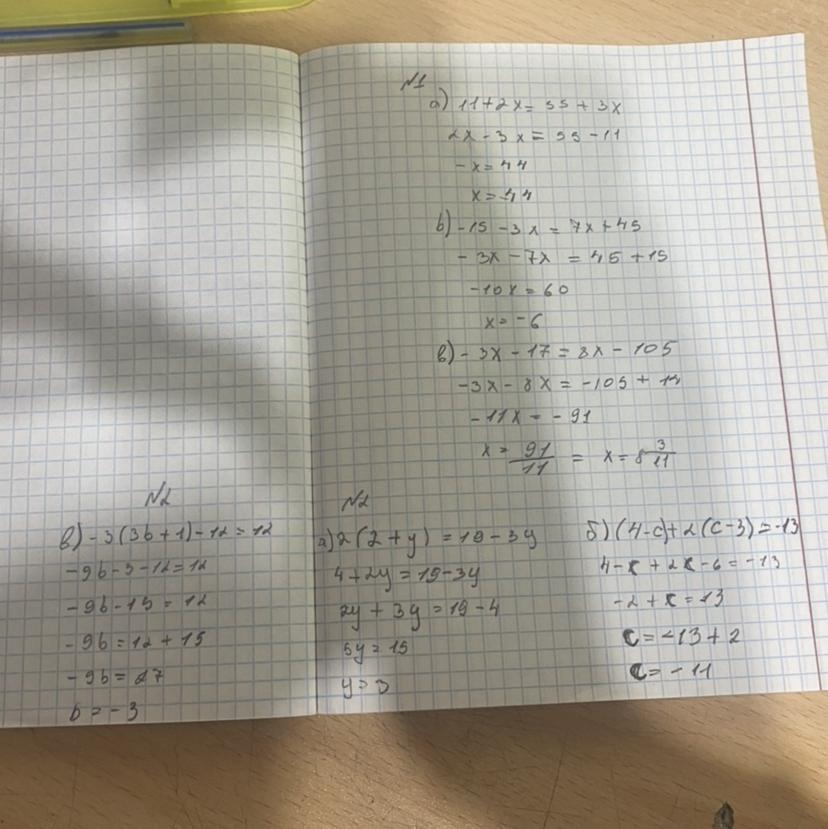 №1
а) 11+2x = 55 + 3x
2x - 3x = 55 - 11
-x = 44
x = -44
b) -15 - 3x = 7x + 45
-3x - 7x = 45 + 15
-10x = 60
x = -6
в) -3x - 17 = 8x - 105
-3x - 8x = -105 +
-11x = -91
x = 91/11 = x = 8 3/11
№2
в) -3(3b + 1) - 12 = 12
-9b - 3 - 12 = 12
-9b - 15 = 12
-9b = 12 + 15
-9b = 27
b = -3
№2
а) 2(2 + y) = 19 - 3y
4 + 2y = 19 - 3y
2y + 3y = 19 - 4
5y = 15
y = 3
б) (4-c) + 2(c-3) = -13
4 - c + 2c - 6 = -13
-2 + c = -13
c = -13 + 2
c = -11